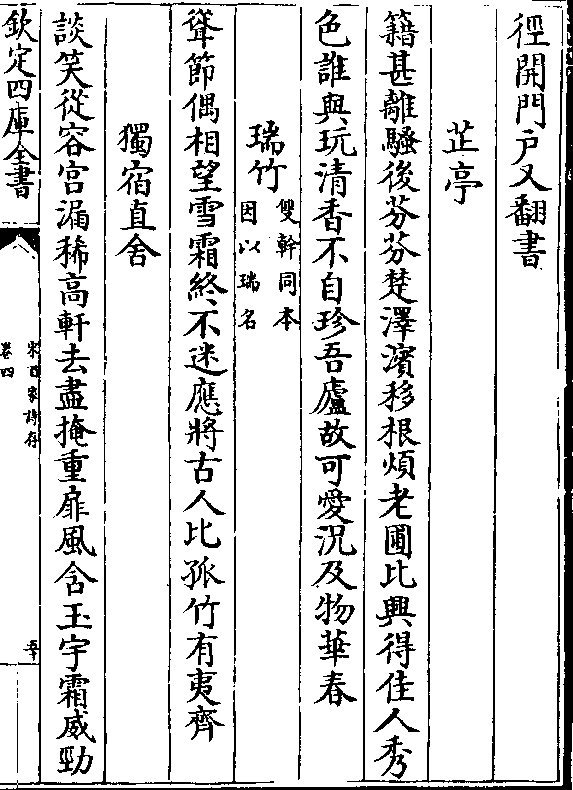 徑開門戶又翻書
芷亭
籍甚離騷後芬芬楚澤濱移根煩老圃比興得佳人秀
色誰與玩清香不自珍吾廬故可愛況及物華春
瑞竹
雙幹同本
因以瑞名
聳節偶相望雪霜終不迷應將古人比孤竹有夷齊
獨宿直舍
談笑從容宮漏稀高軒去盡掩重扉風含玉宇霜威勁
欽定四庫全書
宋百家詩存
卷四